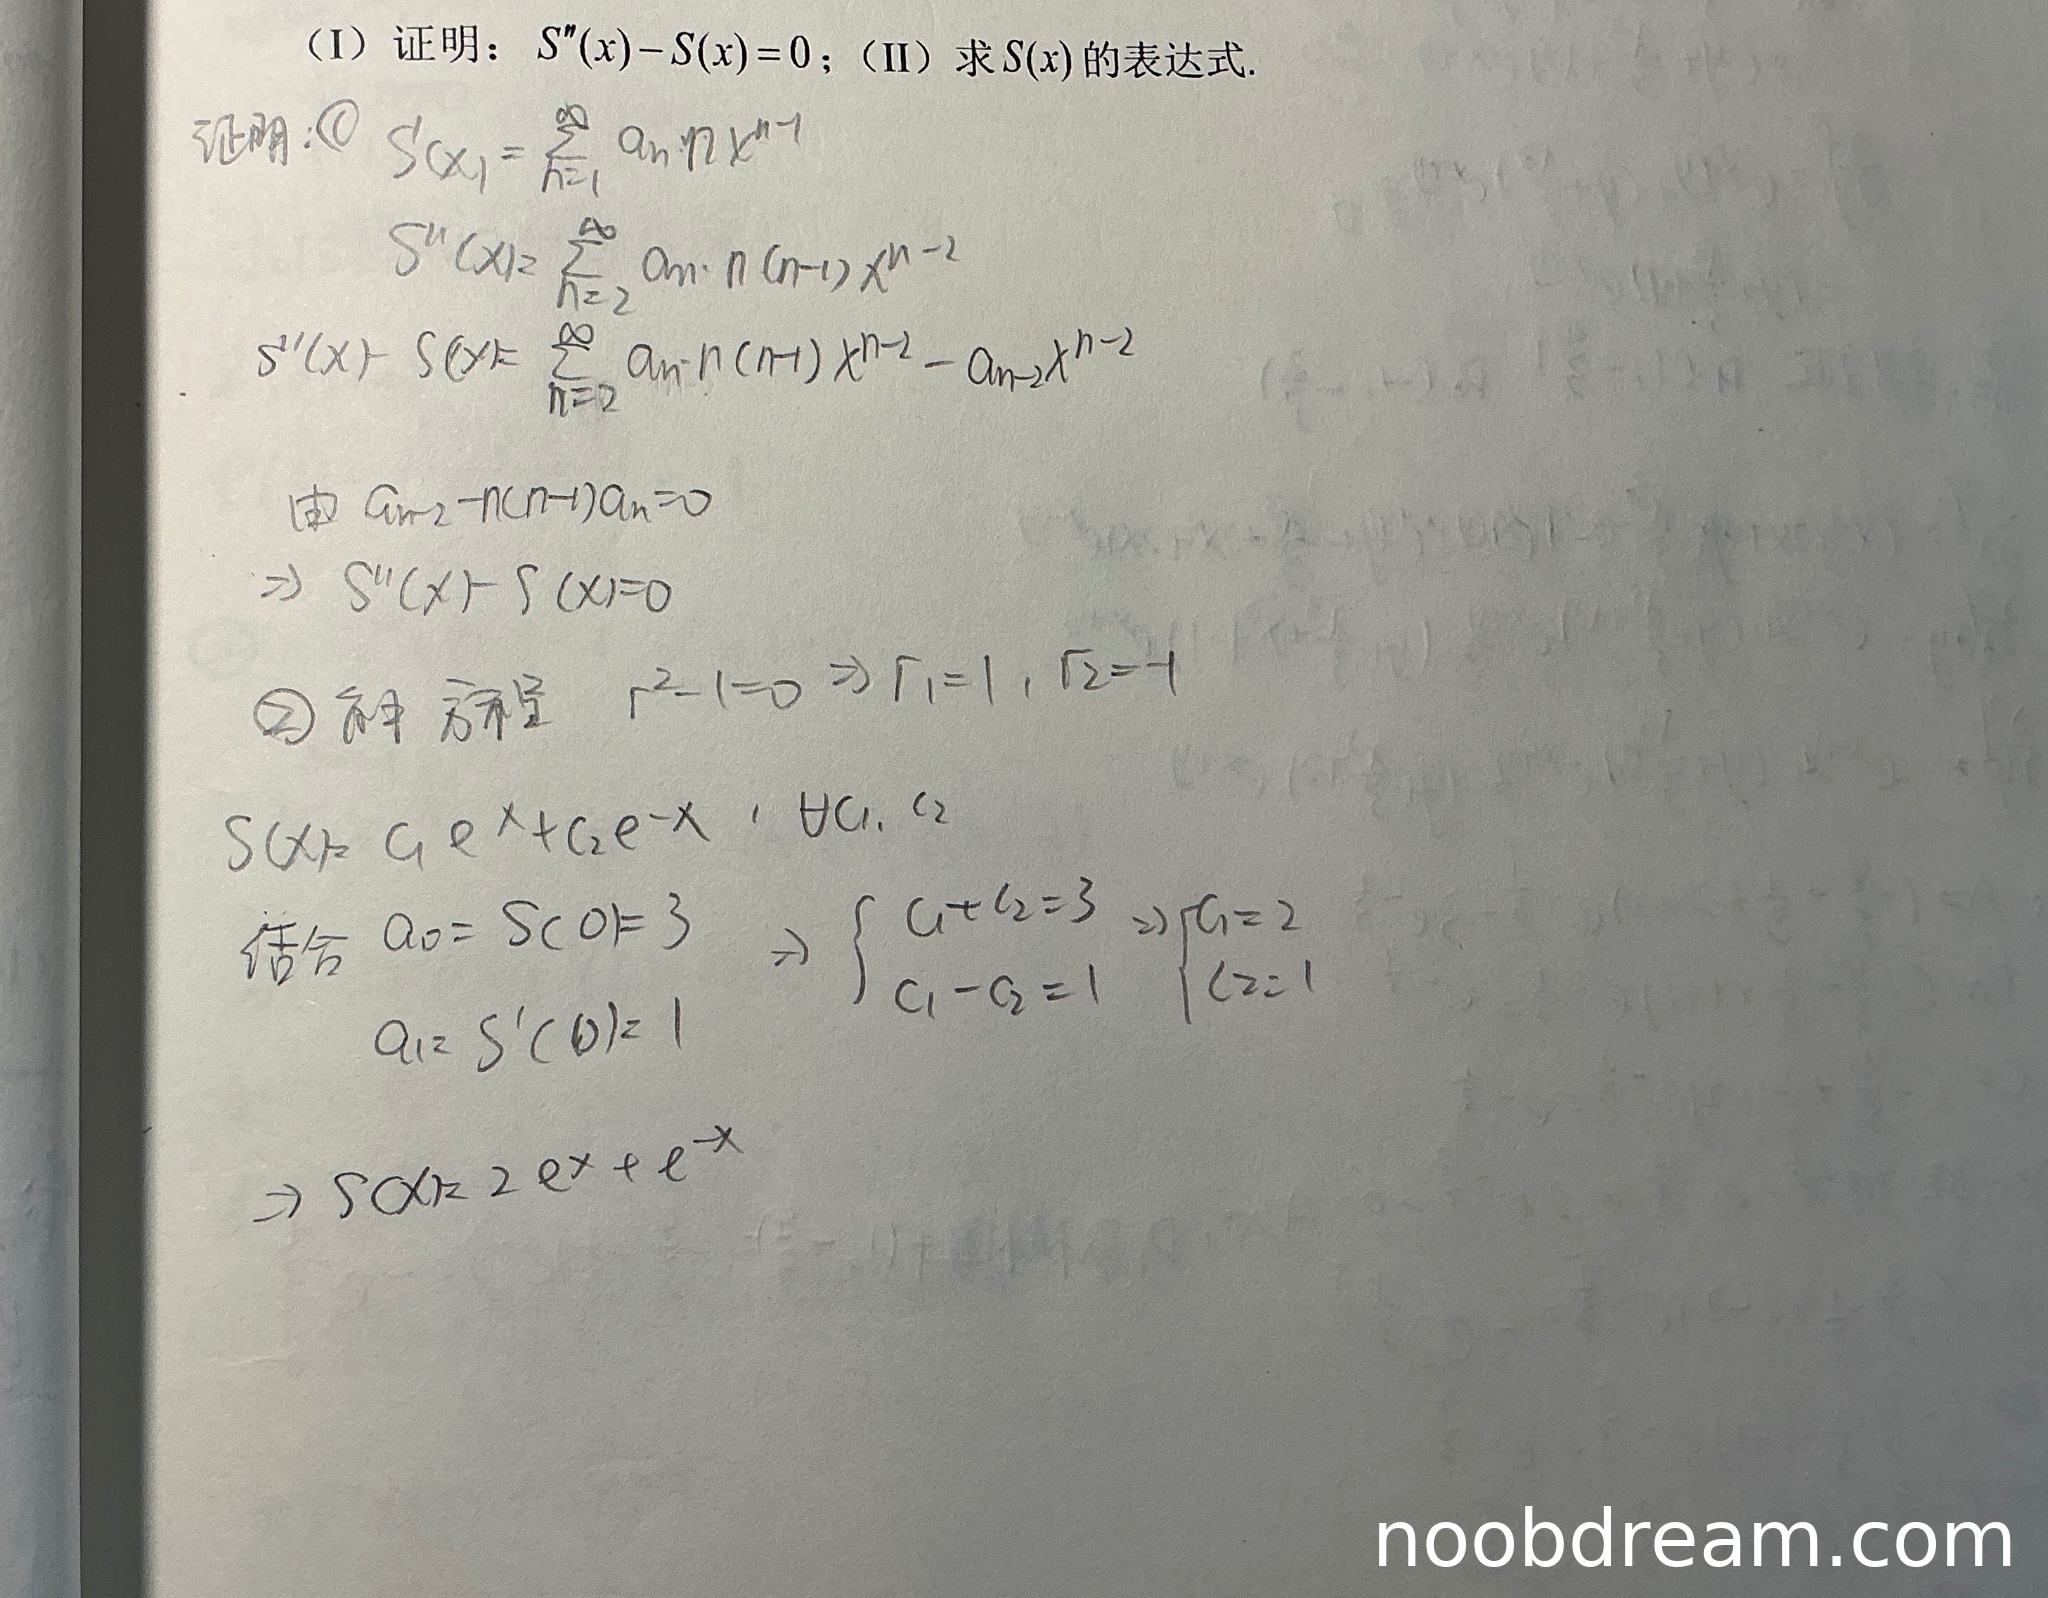 （I）证明：S″(x)−S(x)=0；（II）求S(x)的表达式.
证明:① S'(x)=∑_{n=1}^{∞} aₙ·n x^{n-1}
S''(x)=∑_{n=2}^{∞} aₙ·n(n-1)x^{n-2}
S''(x)-S(x)=∑_{n=2}^{∞} aₙ·n(n-1)x^{n-2}-a_{n-2}x^{n-2}
由 a_{n-2}-n(n-1)aₙ=0
⇒ S''(x)-S(x)=0
② 方程 r²-1=0 ⇒ r₁=1, r₂=-1
S(x)=c₁e^x+c₂e^{-x}, ∀c₁,c₂
结合 a₀=S(0)=3 ⇒ { c₁+c₂=3 ⇒ { c₁=2
a₁=S'(0)=1 c₁-c₂=1 c₂=1
⇒ S(x)=2e^x+e^{-x}
noobdream.com